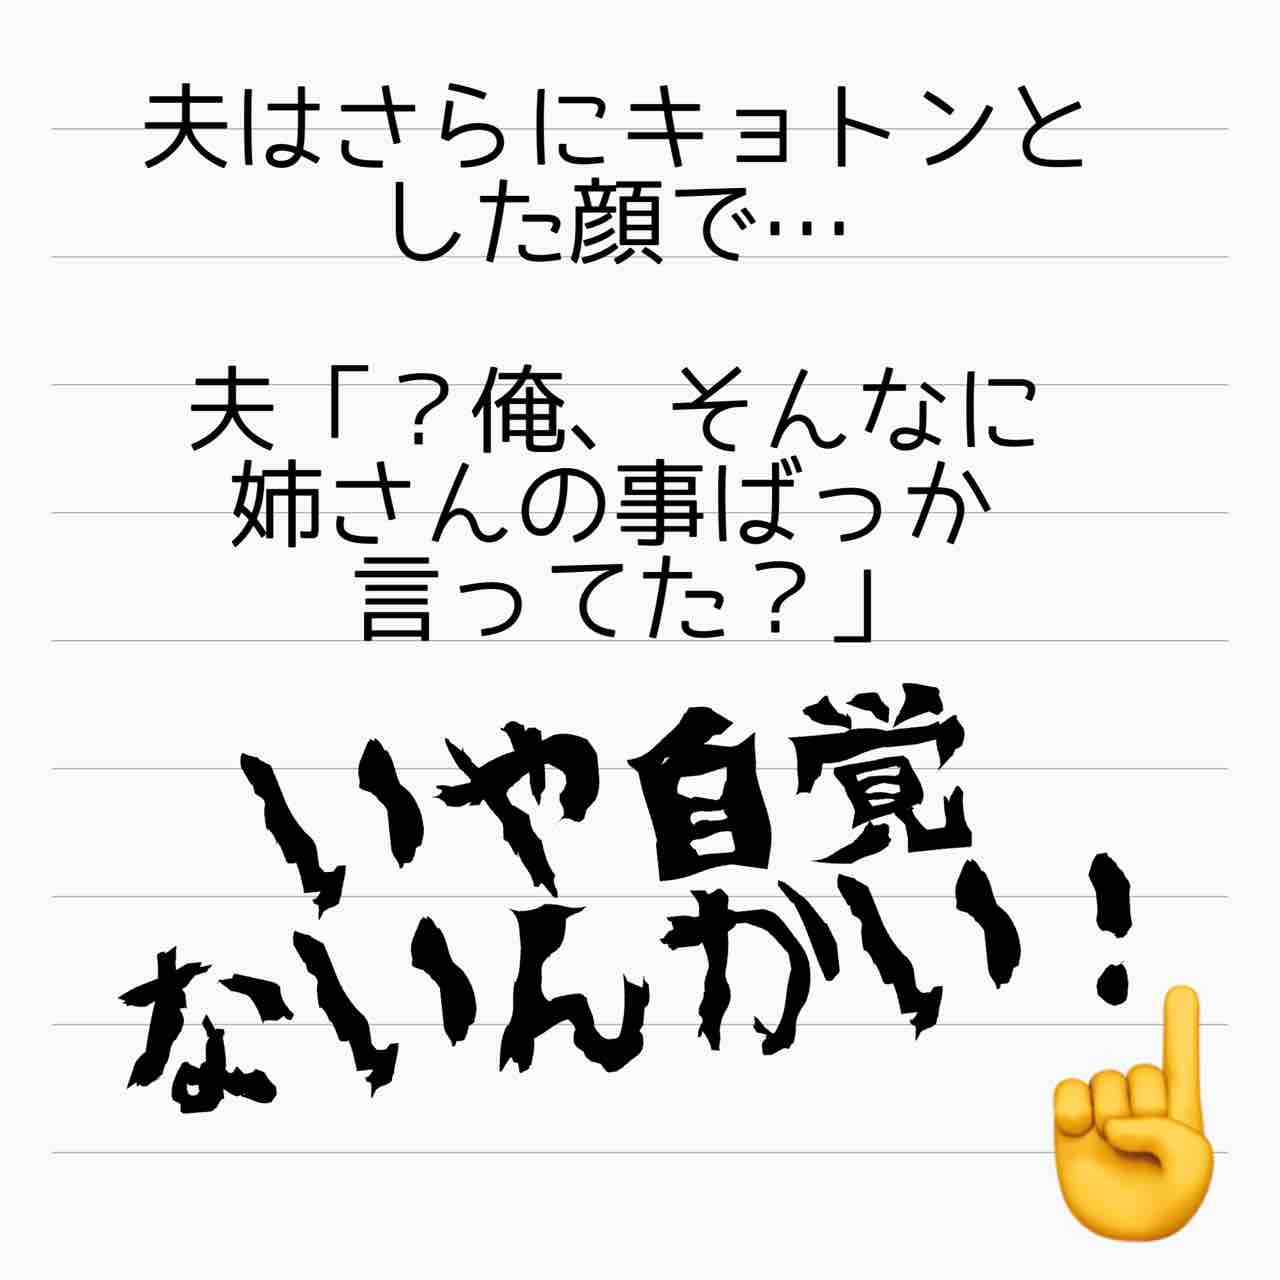 夫はさらにキョトンと
した顔で…
夫「？俺、そんなに
姉さんの事ばっか
言ってた？」
いや自覚
ないんかい！